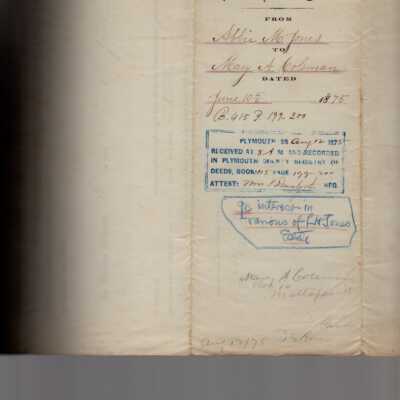 FROM
Abbie M Jones
TO
May A Coleman
DATED
June 10th 1875
B. 415 P. 199-200
PLYMOUTH SS Aug 12 1875
RECEIVED AT 8 A M AND RECORDED
IN PLYMOUTH COUNTY REGISTRY OF
DEEDS, BOOK 415 PAGE 199-200
ATTEST: Wm REG.
interest in
various of
Estate
Mary A Coleman
Mattapoisett
Aug 1875